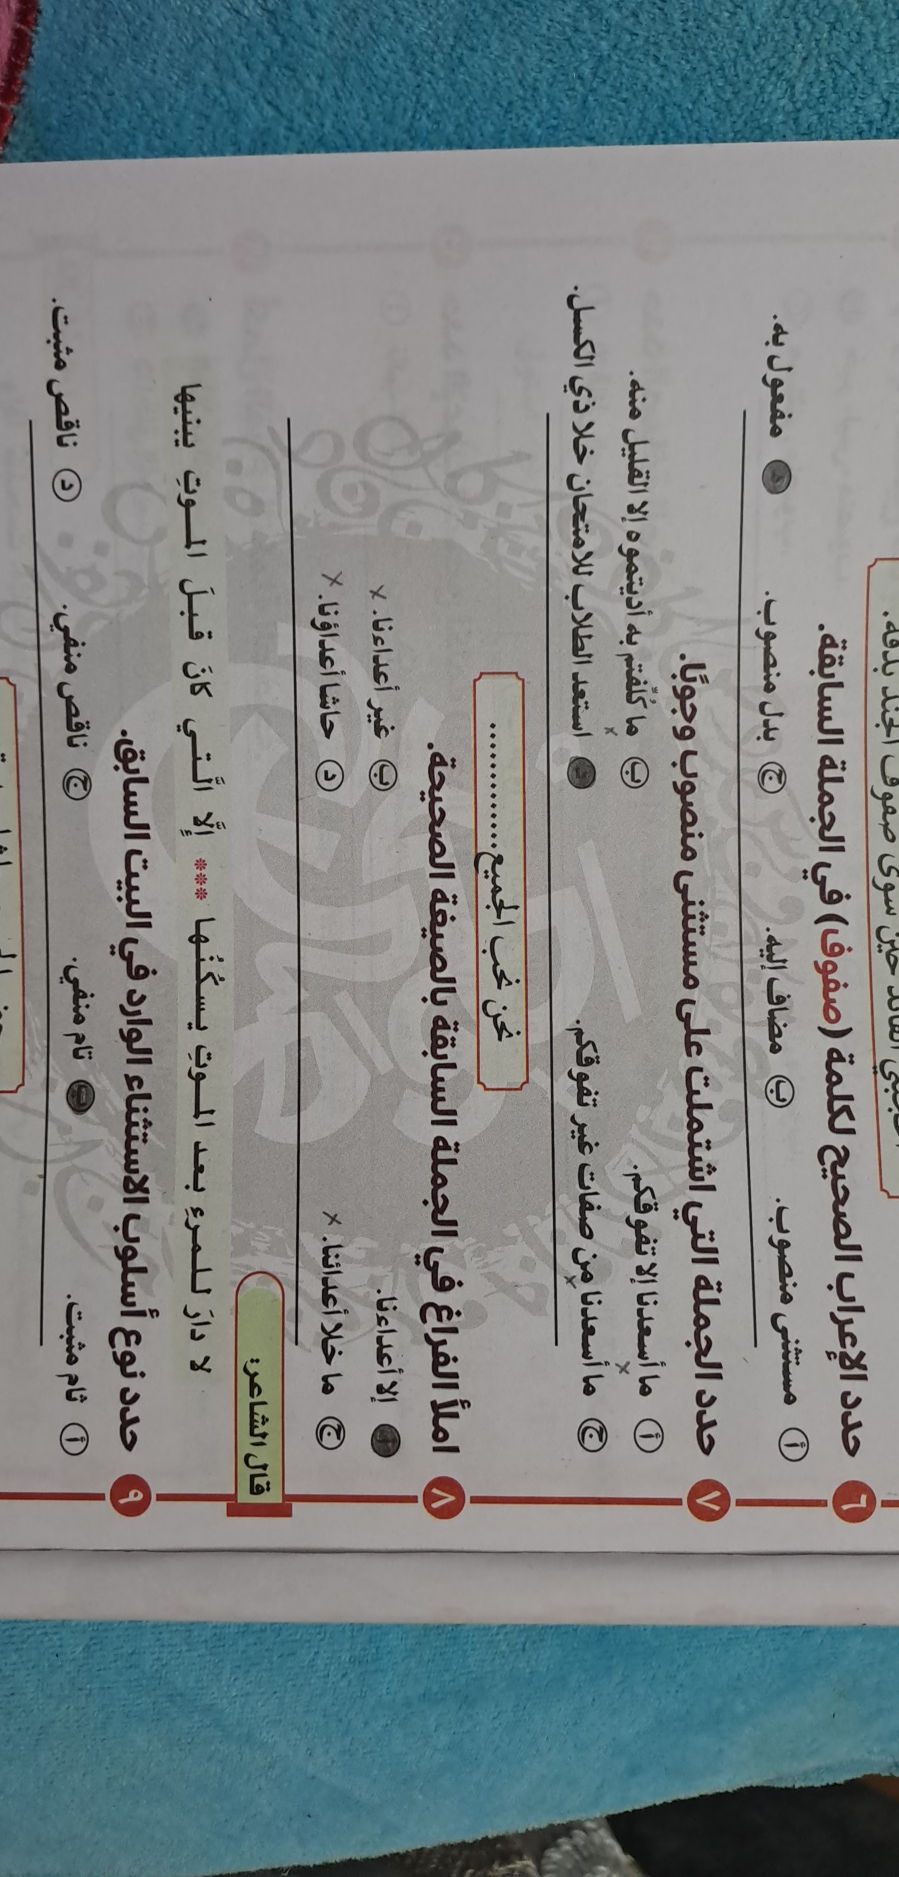 سوى صفوف الجند بدقة.
٦ حدد الإعراب الصحيح لكلمة (صفوف) في الجملة السابقة.
أ مستثنى منصوب. ب مضاف إليه. ج بدل منصوب. مفعول به.
٧ حدد الجملة التي اشتملت على مستثنى منصوب وجوبًا.
أ ما أسعدنا إلا تفوقكم. ب ما كُلِّفتم به أديتموه إلا القليل منه.
ج ما أسعدنا من صفات غير تفوقكم. استعد الطلاب للامتحان خلا ذي الكسل.
نحن نحب الجميع............
٨ املأ الفراغ في الجملة السابقة بالصيغة الصحيحة.
إلا أعداءنا. ب غير أعداءنا. x
ج ما خلا أعدائنا. x د حاشا أعداؤنا. x
قال الشاعر:
لا دارَ للمرءِ بعد الموتِ يسكُنُها *** إلَّا الَّتي كانَ قبلَ الموتِ يبنيها
٩ حدد نوع أسلوب الاستثناء الوارد في البيت السابق.
أ تام مثبت. ب تام منفي. ج ناقص منفي. د ناقص مثبت.